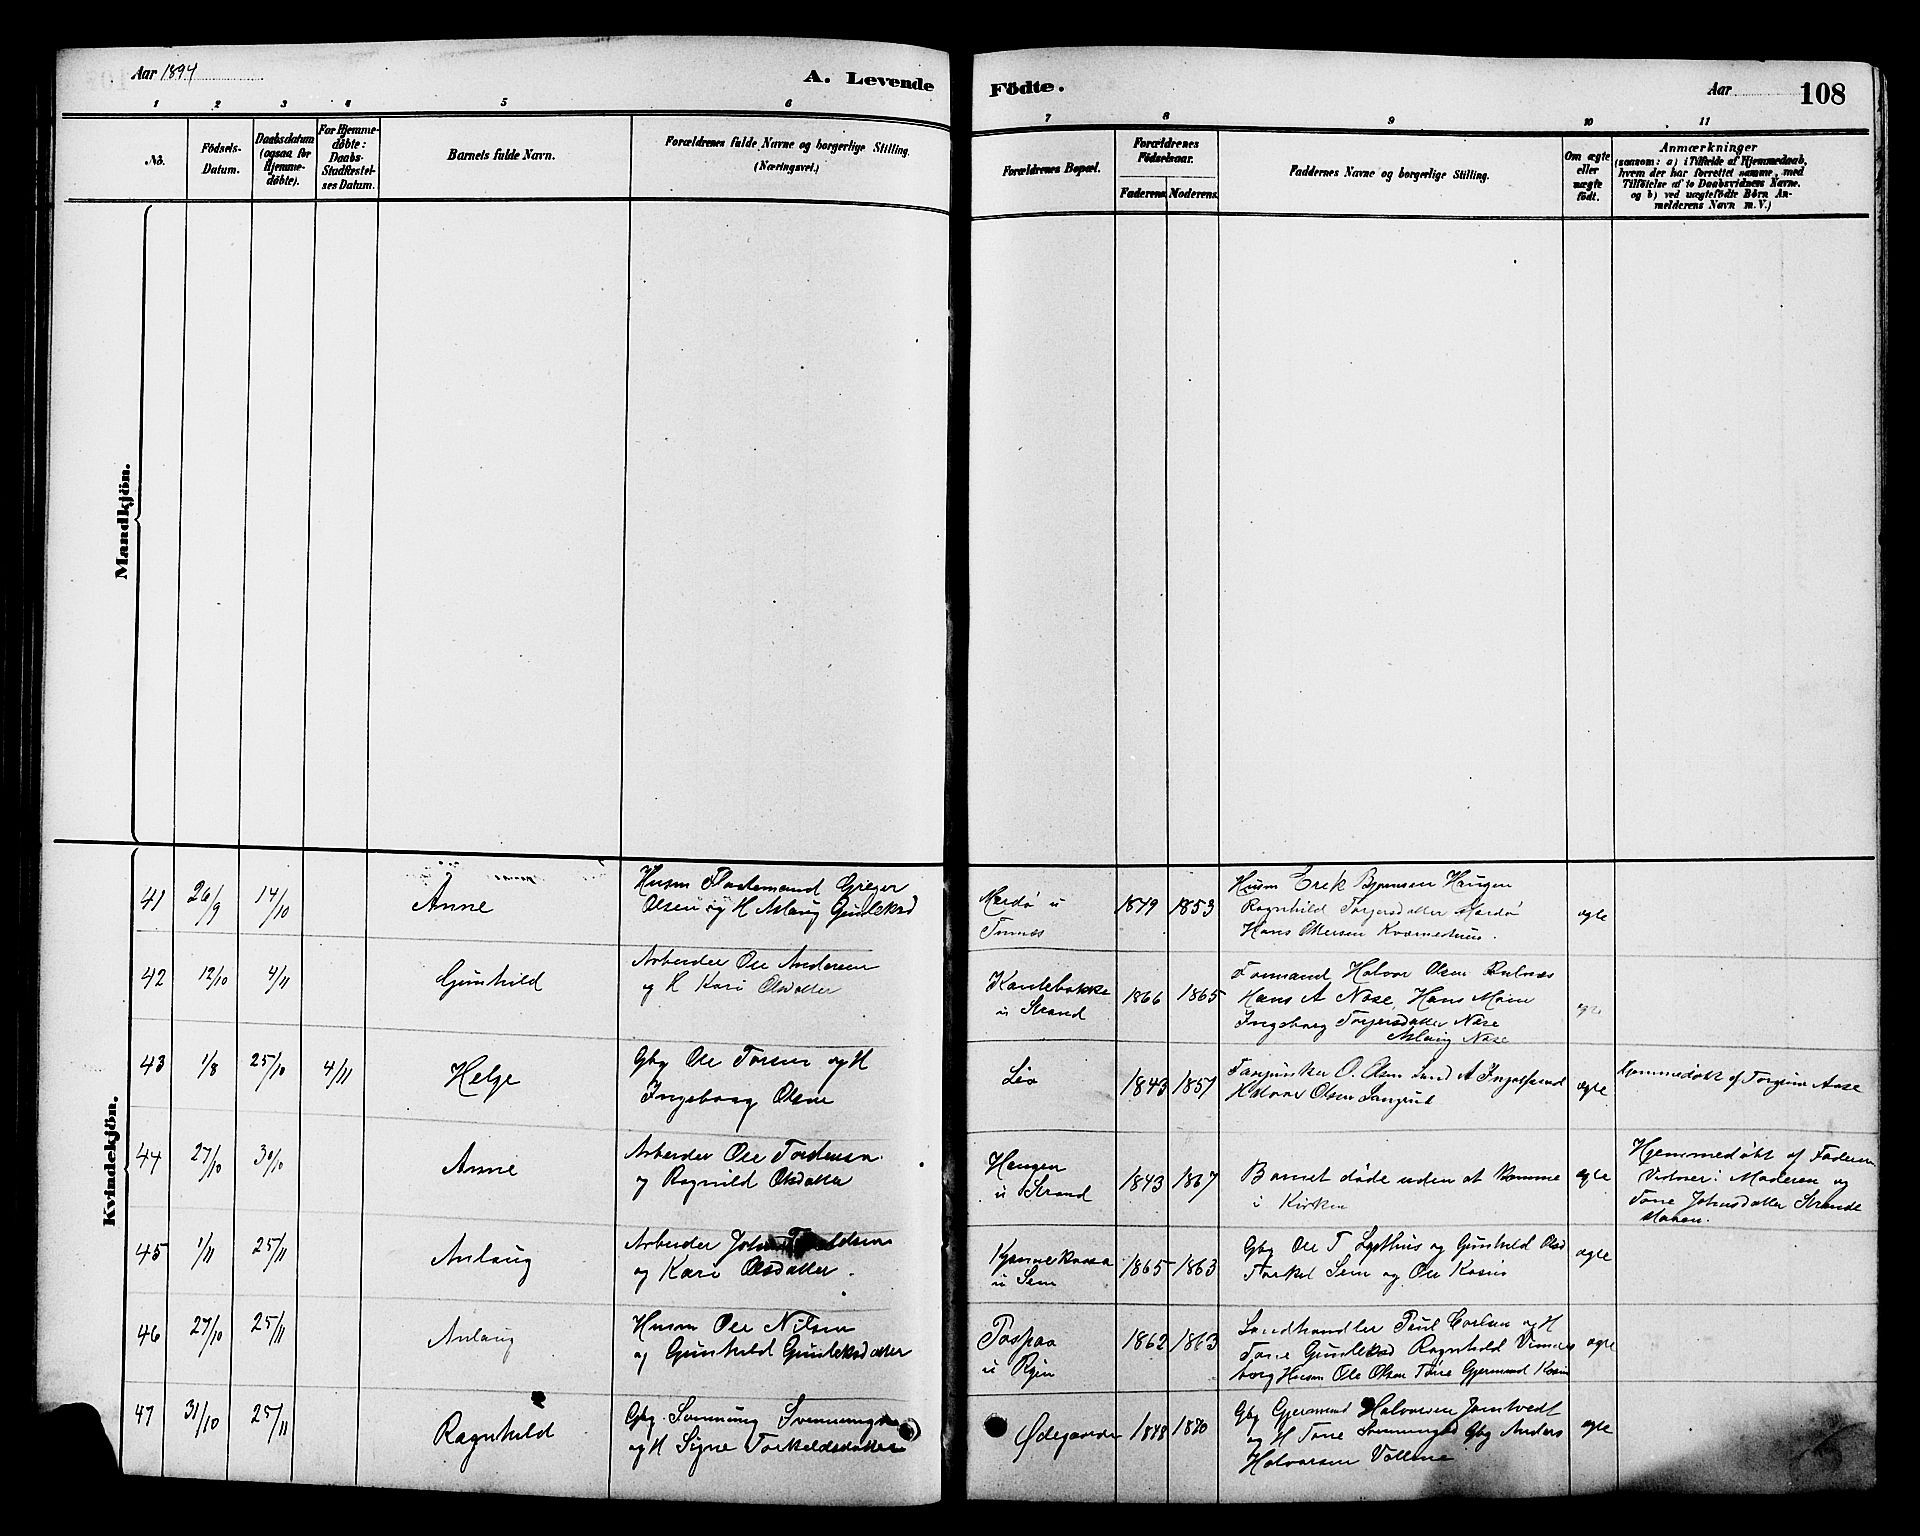 Aar 1894
A. Levende
Födte.
Aar
108
1 2 3 4 5 6 7 8 9 10 11
No.
Födsels-
Datum.
Daabsdatum
(ogsaa for
Hjemme-
döbte).
For Hjemme-
döbte:
Daabs-
Stadfæstel-
ses Datum.
Barnets fulde Navn.
Forældrenes fulde Navne og borgerlige Stilling.
(Næringsvei.)
Forældrenes Bopæl.
Forældrenes
Födselsaar.
Faderens. Moderens.
Faddernes Navne og borgerlige Stilling.
Om ægte
eller
uægte
födt.
Anmærkninger
(saasom: a) i Tilfælde af Hjemmedaab,
hvem der har forrettet samme, med
Tilföielse af to Daabsvidners Navne.
og b) ved uægtefödte Börn An-
melderens Navn m. V.)
Mandkjön.
Kvindekjön.
41 26/9 14/10 Anne
Husm Gregar
Olsen og H Aslaug Gunleksd
Mardø u
Tinnæs
1879 1853
Husm Erek Bjørnsen Haugen
Ragnhild Torjersdatter Mardø
Hans
ægte
42 12/10 4/11 Gunhild
Arbeider Ole Andersen
og H Kari Olsdatter
Kantebakke
u Strand
1866 1865
Formand Halvor Olsen
Hans A Nase, Hans Moen
Ingeborg Torjersdatter Nase
Aslaug Nase
ægte
43 1/8 25/10 4/11 Helge
Gbg Ole og H
Ingeborg Olsen
Lio
1843 1857
O. Olsen
Halvor Olsen
ægte
Hjemmedøbt af Torgrim Aase
44 27/10 30/10 Anne
Arbeider Ole
og Ragnild Olsdatter
Haugen
u Strand
1843 1867
Barnet døde uden at komme
i Kirken
ægte
Hjemmedøbt af Faderen
Vidner: Moderen og
Tone Johnsdatter Strande
45 1/11 25/11 Anlaug
Arbeider John
og Kari Olsdatter.
u Sem
1865 1863
Gbg Ole T Lysthus og Gunhild Olsd
Torkel Sem og Ole Kasin
ægte
46 27/10 25/11 Anlaug
Husm Ole Nilsen
og Gunhild Gunleksdatter
u Ryen
1862 1863
Landhandler Paul Carlsen og H
Tone Gunleksd Ragnhild Vinnes
borg Husm Ole Olsen Tone Gjermund Kasin
ægte
47 31/10 25/11 Ragnhild
Gbg. Svennung Svennungsen
og H Signe Torkeldsdatter
Ødegaarden
1848 1870
Gbg Gjermund Halvorsen Jamtvedt
og H Tone Svennungsd Gbg Anders
Halvorsen
ægte